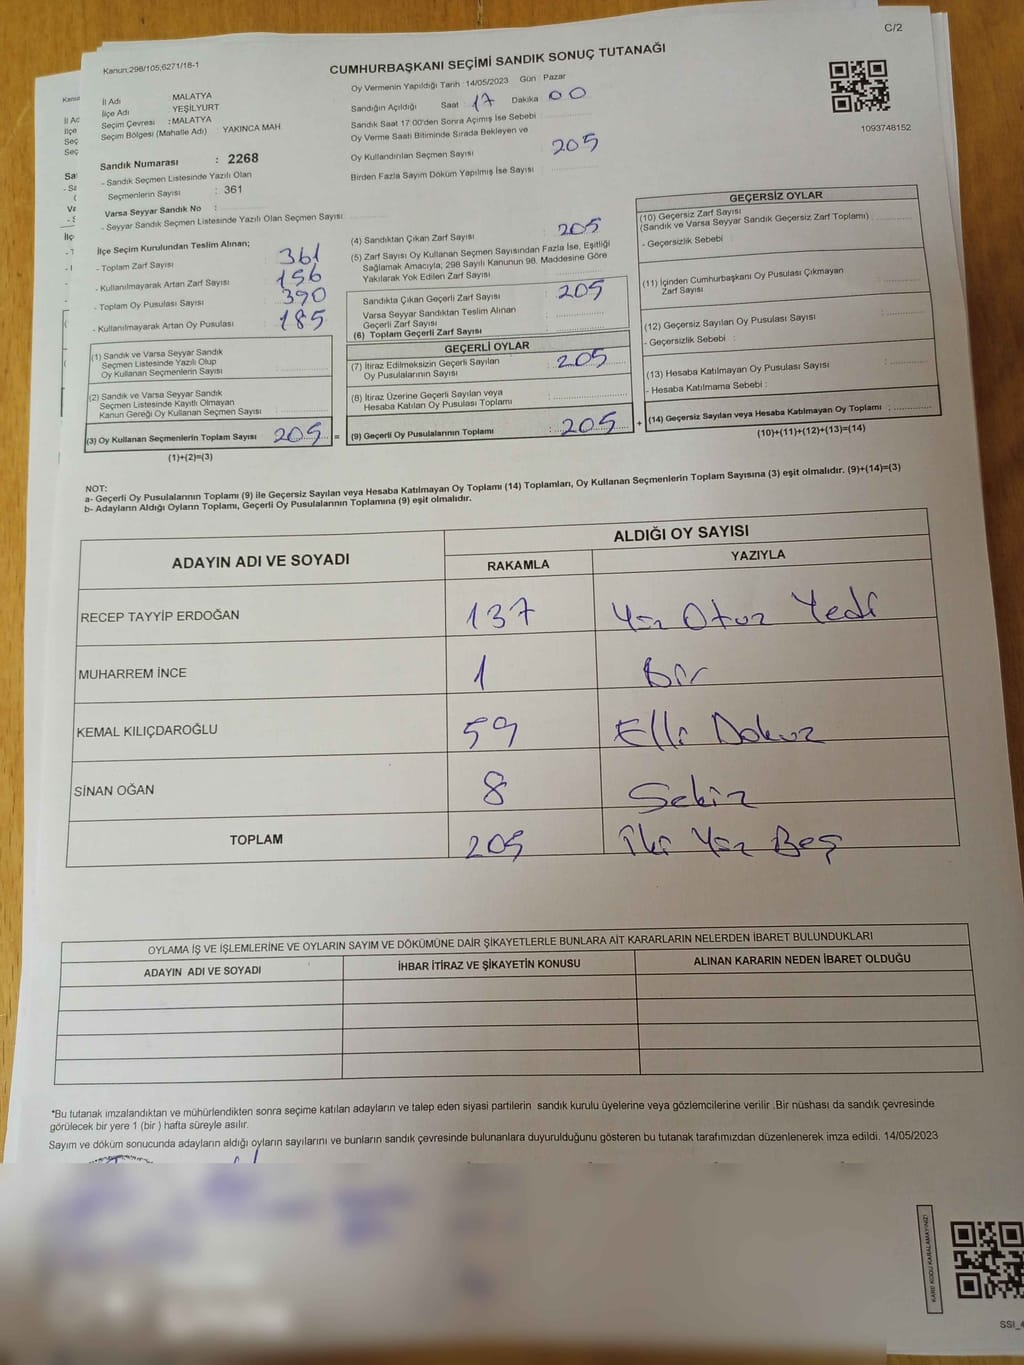 C/2
Kanun;298/105,6271/18-1
CUMHURBAŞKANI SEÇİMİ SANDIK SONUÇ TUTANAĞI
İl Adı MALATYA
İlçe Adı : YEŞİLYURT
Seçim Çevresi : MALATYA
Seçim Bölgesi (Mahalle Adı) YAKINCA MAH
Sandık Numarası : 2268
- Sandık Seçmen Listesinde Yazılı Olan
Seçmenlerin Sayısı : 361
Varsa Seyyar Sandık No :
- Seyyar Sandık Seçmen Listesinde Yazılı Olan Seçmen Sayısı:
Oy Vermenin Yapıldığı Tarih : 14/05/2023 Gün : Pazar
Sandığın Açıldığı Saat : 17 Dakika 00
Sandık Saat 17:00'den Sonra Açımış İse Sebebi :
Oy Verme Saati Bitiminde Sırada Bekleyen ve
Oy Kullandırılan Seçmen Sayısı : 205
Birden Fazla Sayım Döküm Yapılmış İse Sayısı :
1093748152
İlçe Seçim Kurulundan Teslim Alınan;
- Toplam Zarf Sayısı : 361
- Kullanılmayarak Artan Zarf Sayısı : 156
- Toplam Oy Pusulası Sayısı : 390
- Kullanılmayarak Artan Oy Pusulası : 185
(1) Sandık ve Varsa Seyyar Sandık
Seçmen Listesinde Yazılı Olup
Oy Kullanan Seçmenlerin Sayısı :
(2) Sandık ve Varsa Seyyar Sandık
Seçmen Listesinde Kayıtlı Olmayan
Kanun Gereği Oy Kullanan Seçmen Sayısı :
(3) Oy Kullanan Seçmenlerin Toplam Sayısı 205 =
(1)+(2)=(3)
(4) Sandıktan Çıkan Zarf Sayısı : 205
(5) Zarf Sayısı Oy Kullanan Seçmen Sayısından Fazla İse, Eşitliği
Sağlamak Amacıyla, 298 Sayılı Kanunun 98. Maddesine Göre
Yakılarak Yok Edilen Zarf Sayısı :
Sandıkta Çıkan Geçerli Zarf Sayısı : 205
Varsa Seyyar Sandıktan Teslim Alınan
Geçerli Zarf Sayısı :
(6) Toplam Geçerli Zarf Sayısı :
GEÇERLİ OYLAR
(7) İtiraz Edilmeksizin Geçerli Sayılan
Oy Pusulalarının Sayısı : 205
(8) İtiraz Üzerine Geçerli Sayılan veya
Hesaba Katılan Oy Pusulası Toplamı :
(9) Geçerli Oy Pusulalarının Toplamı : 205 +
GEÇERSİZ OYLAR
(10) Geçersiz Zarf Sayısı
(Sandık ve Varsa Seyyar Sandık Geçersiz Zarf Toplamı) :
- Geçersizlik Sebebi :
(11) İçinden Cumhurbaşkanı Oy Pusulası Çıkmayan
Zarf Sayısı :
(12) Geçersiz Sayılan Oy Pusulası Sayısı :
- Geçersizlik Sebebi :
(13) Hesaba Katılmayan Oy Pusulası Sayısı :
- Hesaba Katılmama Sebebi :
(14) Geçersiz Sayılan veya Hesaba Katılmayan Oy Toplamı :
(10)+(11)+(12)+(13)=(14)
NOT:
a- Geçerli Oy Pusulalarının Toplamı (9) ile Geçersiz Sayılan veya Hesaba Katılmayan Oy Toplamı (14) Toplamları, Oy Kullanan Seçmenlerin Toplam Sayısına (3) eşit olmalıdır. (9)+(14)=(3)
b- Adayların Aldığı Oyların Toplamı, Geçerli Oy Pusulalarının Toplamına (9) eşit olmalıdır.
ADAYIN ADI VE SOYADI ALDIĞI OY SAYISI
RAKAMLA YAZIYLA
RECEP TAYYİP ERDOĞAN 137 Yüz Otuz Yedi
MUHARREM İNCE 1 Bir
KEMAL KILIÇDAROĞLU 59 Elli Dokuz
SİNAN OĞAN 8 Sekiz
TOPLAM 205 İki Yüz Beş
OYLAMA İŞ VE İŞLEMLERİNE VE OYLARIN SAYIM VE DÖKÜMÜNE DAİR ŞİKAYETLERLE BUNLARA AİT KARARLARIN NELERDEN İBARET BULUNDUKLARI
ADAYIN ADI VE SOYADI İHBAR İTİRAZ VE ŞİKAYETİN KONUSU ALINAN KARARIN NEDEN İBARET OLDUĞU
*Bu tutanak imzalandıktan ve mühürlendikten sonra seçime katılan adayların ve talep eden siyasi partilerin sandık kurulu üyelerine veya gözlemcilerine verilir .Bir nüshası da sandık çevresinde
görülecek bir yere 1 (bir ) hafta süreyle asılır.
Sayım ve döküm sonucunda adayların aldığı oyların sayılarını ve bunların sandık çevresinde bulunanlara duyurulduğunu gösteren bu tutanak tarafımızdan düzenlenerek imza edildi. 14/05/2023
KARE KODU KARALAMAYINIZ!